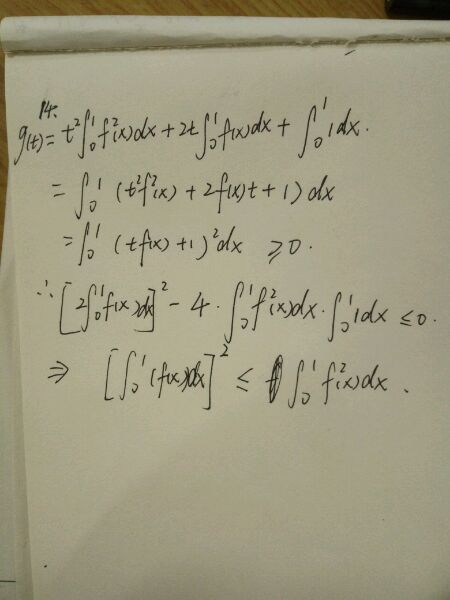 14.
g(t) = t²∫₀¹f²(x)dx + 2t∫₀¹f(x)dx + ∫₀¹1dx.
= ∫₀¹ (t²f²(x) + 2f(x)t + 1) dx
= ∫₀¹ (tf(x) + 1)²dx ≥ 0.
∴ [2∫₀¹f(x)dx]² - 4·∫₀¹f²(x)dx·∫₀¹1dx ≤ 0.
⇒ [∫₀¹(f(x)dx]² ≤ ∫₀¹f²(x)dx.